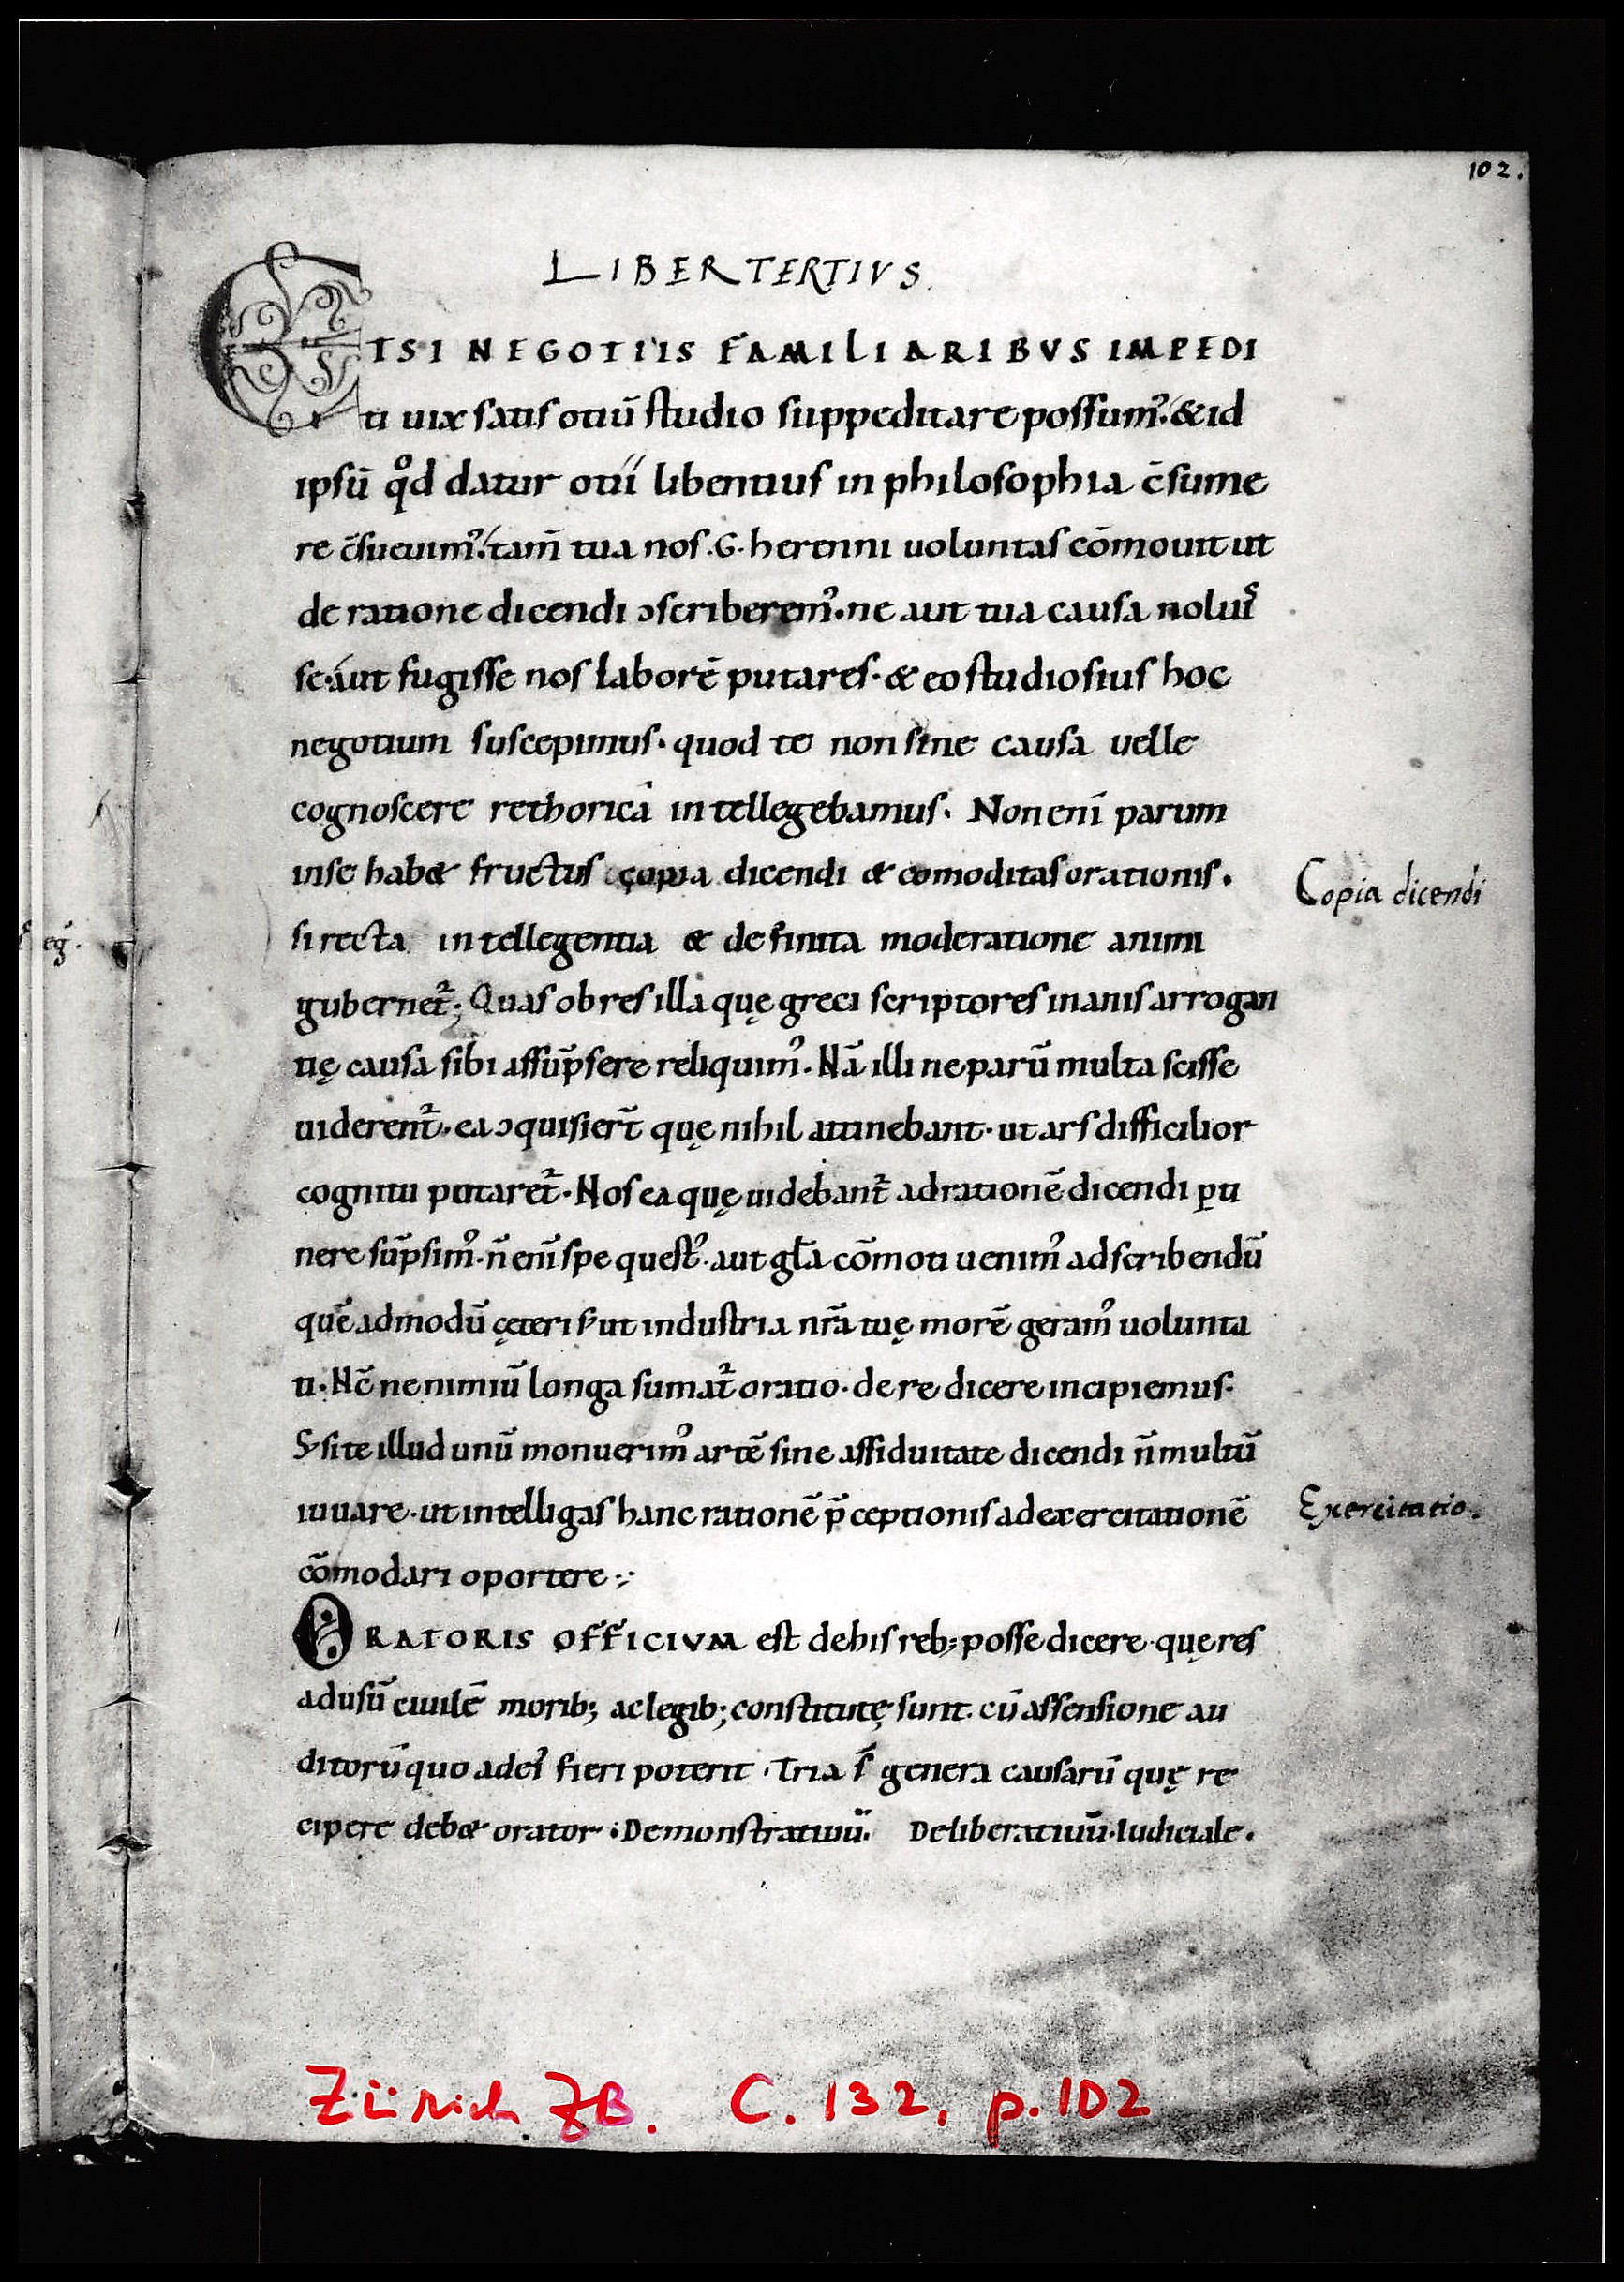 102.
LIBER TERTIVS.
ETSI NEGOTIIS FAMILIARIBVS IMPEDI
ti uix satis otiū studio suppeditare possum᾽. & id
ipsū qͦd datur otii libentius in philosophia c̄sume
re c̄sueuim᾽. tam̄ tua nos .G. herenni uoluntas cōmouit ut
de ratione dicendi ↄscriberem᾽. ne aut tua causa noluis
se. aut fugisse nos laborē putares. & eo studiosius hoc
negotium suscepimus. quod te non sine causa uelle
cognoscere rethoricā intellegebamus. Non enī parum
in se hab& fructus copia dicendi & comoditas orationis.
Copia dicendi
si recta intellegentia & definita moderatione animi
eḡ.
gubernet᷑; Quas ob res illa quę greci scriptores inanis arrogan
tię causa sibi assūpsere reliquim᾽. Nā illi ne parū multa scisse
uiderent᷑. ea ↄquisiert̄ quę nihil attinebant. ut ars difficilior
cognitu putaret᷑. Nos ea quę uidebant᷑ ad rationē dicendi ꝑti
nere sūpsim᾽. n̄ eni᷑ spe quest᾽. aut gl̄a cōmoti uenim᾽ ad scribendū
quēadmodū çęteri s; ut industria nr̄a tuę morē geram᾽ uolunta
ti. Nc̄ ne nimiū longa sumat᷑ oratio. de re dicere incipiemus.
S; si te illud unū monuerim᾽ artē sine assiduitate dicendi n̄ multū
iuuare. ut intelligas hanc rationē p̄ceptionis ad exercitationē
Exercitatio.
cōmodari oportere :;
ORATORIS OFFICIVM est de his reb; posse dicere. quę res
ad usū ciuilē morib; ac legib; constitutę sunt. cū assensione au
ditorū quo ad ei᾽ fieri poterit. Tria s̄ genera causarū quę re
cipere deb& orator. Demonstratiuū. Deliberatiuū. Iudiciale.
Zürich ZB. C. 132, p. 102